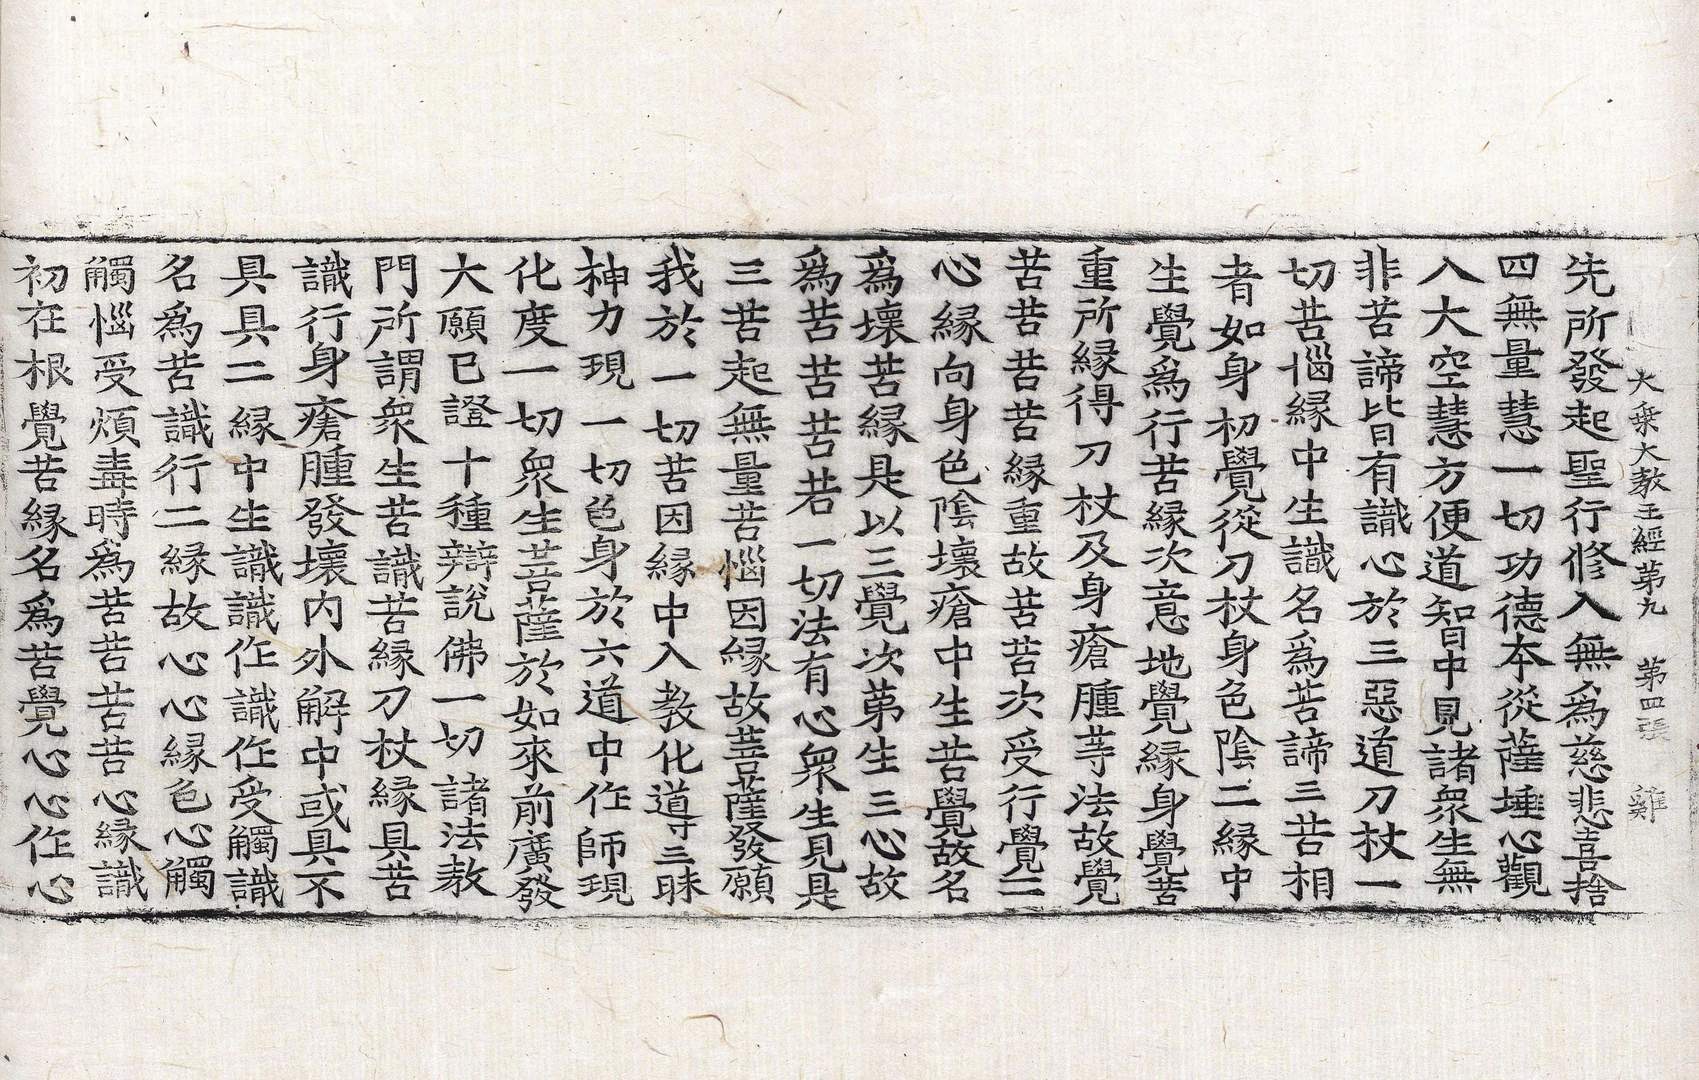 大乗大教王經第九 第四張 雞
先所發起聖行修入無爲慈悲喜捨
四無量慧一切功德本從薩埵心觀
入大空慧方便道智中見諸衆生無
非苦諦皆有識心於三惡道刀杖一
切苦惱縁中生識名爲苦諦三苦相
者如身初覺從刀杖身色陰二縁中
生覺爲行苦縁次意地覺縁身覺苦
重所縁得刀杖及身瘡腫等法故覺
苦苦苦苦縁重故苦苦次受行覺二
心縁向身色陰壞瘡中生苦覺故名
爲壞苦縁是以三覺次第生三心故
爲苦苦苦若一切法有心衆生見是
三苦起無量苦惱因縁故菩薩發願
我於一切苦因縁中入教化道寸三昧
神力現一切色身於六道中作師現
化度一切衆生菩薩於如來前廣發
大願已證十種辯說佛一切諸法教
門所謂衆生苦識苦縁刀杖縁具苦
識行身瘡腫發壞內外解中或具不
具具二縁中生識識作識作受觸識
名爲苦識行二縁故心心縁色心觸
觸惱受煩毒時爲苦苦苦苦心縁識
初在根覺苦縁名爲苦覺心心作心